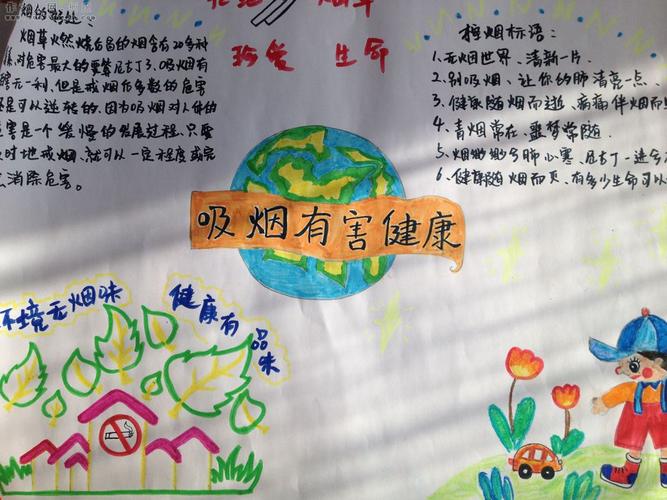 珍爱 生命
烟的好处:
烟草燃烧后的烟含有20多种
对危害最大的要算尼古丁了。吸烟有
无一利,但是戒烟化多数的危害
是可以逆转的。因为吸烟对人体的
害是一个缓慢的发展过程,只要
时地戒烟、就可以一定程度或完
消除危害。
控烟标语:
1、无烟世界、清新一片。
2、别吸烟、让你的肺清亮一点、
3、健康随烟而逝、病痛伴烟而
4、青烟常在、噩梦常随
5、烟缈缈兮肺心寒、尼古丁一进兮
6、健康随烟而灭、有多少生命可以
吸烟有害健康
环境无烟味
健康有品味